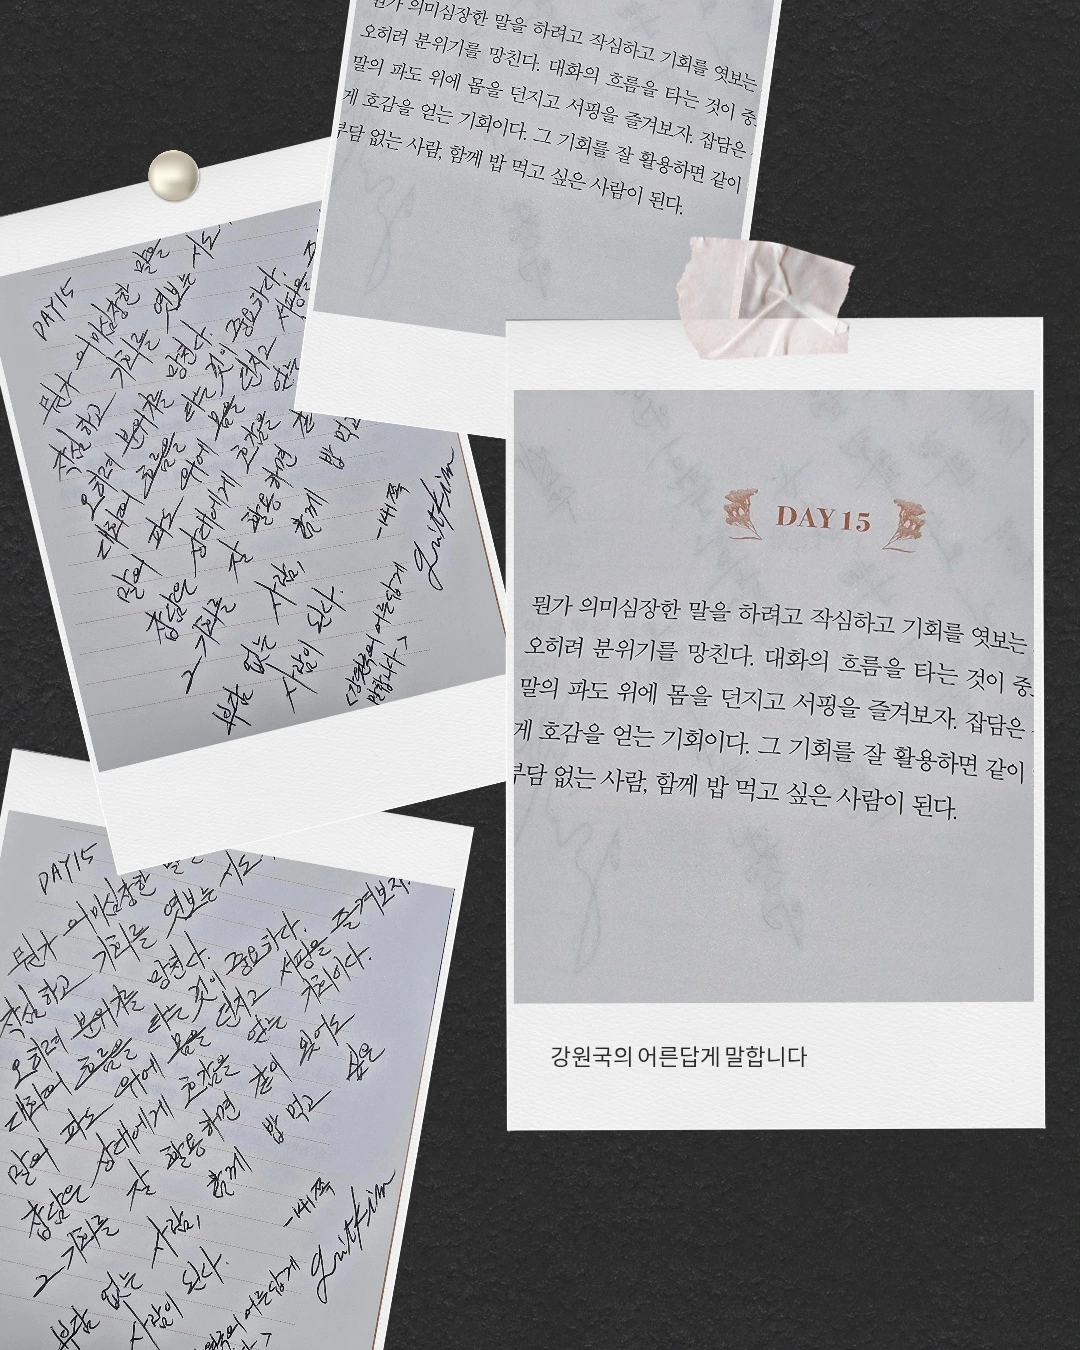 뭔가 의미심장한 말을 하려고 작심하고 기회를 엿보는
오히려 분위기를 망친다. 대화의 흐름을 타는 것이 중
말의 파도 위에 몸을 던지고 서핑을 즐겨보자. 잡담은
게 호감을 얻는 기회이다. 그 기회를 잘 활용하면 같이
부담 없는 사람, 함께 밥 먹고 싶은 사람이 된다.
DAY15
뭔가 의미심장한 말을
작심하고 기회를 엿보는 시도
오히려 분위기를 망친다.
대화의 흐름을 타는 것이 중요하다.
말의 파도 위에 몸을 던지고 서핑을
잡담은 상대에게 호감을 얻는
그 기회를 잘 활용하면
부담 없는 사람, 함께 밥 먹고
사람이 된다.
<강원국의 어른답게
말합니다>
DAY 15
뭔가 의미심장한 말을 하려고 작심하고 기회를 엿보는
오히려 분위기를 망친다. 대화의 흐름을 타는 것이 중
말의 파도 위에 몸을 던지고 서핑을 즐겨보자. 잡담은
게 호감을 얻는 기회이다. 그 기회를 잘 활용하면 같이
부담 없는 사람, 함께 밥 먹고 싶은 사람이 된다.
강원국의 어른답게 말합니다
DAY15
뭔가 의미심장한 말은
작심하고 기회를 엿보는 시도
오히려 분위기를 망친다.
대화의 흐름을 타는 것이 중요하다.
말의 파도 위에 몸을 던지고 서핑을 즐겨보자.
잡담은 상대에게 호감을 얻는 기회이다.
그 기회를 잘 활용하면 같이 있어도
부담 없는 사람, 함께 밥 먹고 싶은
사람이 된다.
어른답게